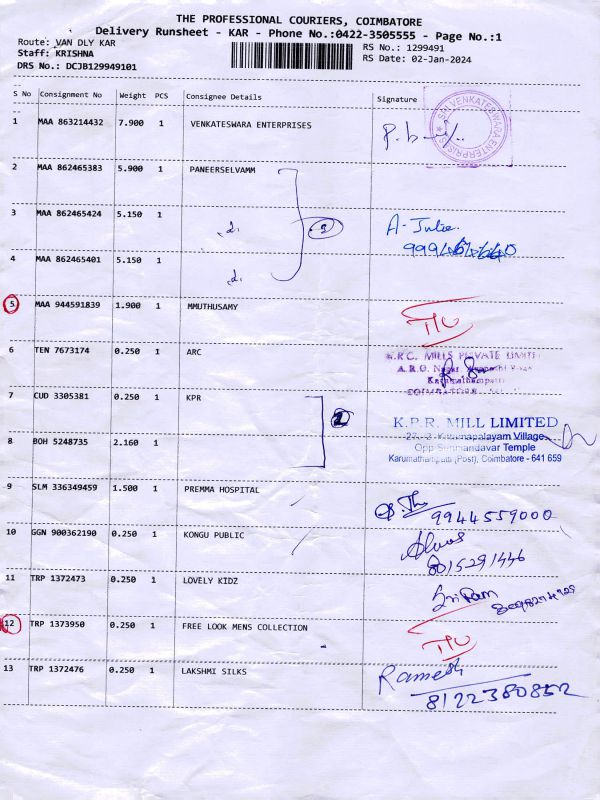 THE PROFESSIONAL COURIERS, COIMBATORE
Delivery Runsheet - KAR - Phone No.:0422-3505555 - Page No.:1
Route: VAN DLY KAR
Staff: KRISHNA
DRS No.: DCJB129949101
RS No.: 1299491
RS Date: 02-Jan-2024
S No Consignment No Weight PCS Consignee Details Signature
1 MAA 863214432 7.900 1 VENKATESWARA ENTERPRISES
SRI VENKATESWARA ENTERPRISES
2 MAA 862465383 5.900 1 PANEERSELVAMM
3 MAA 862465424 5.150 1 A- Julie
4 MAA 862465401 5.150 1
5 MAA 944591839 1.900 1 MMUTHUSAMY
6 TEN 7673174 0.250 1 ARC
MILLS PRIVATE LIMITE
7 CUD 3305381 0.250 1 KPR
K.P.R. MILL LIMITED
Village
Opp
Temple
(Post), Coimbatore - 641 659
8 BOH 5248735 2.160 1
9 SLM 336349459 1.500 1 PREMMA HOSPITAL
9944559000
10 GGN 900362190 0.250 1 KONGU PUBLIC
8015291446
11 TRP 1372473 0.250 1 LOVELY KIDZ
Sri Ram
12 TRP 1373950 0.250 1 FREE LOOK MENS COLLECTION
13 TRP 1372476 0.250 1 LAKSHMI SILKS
Ramesh
8122380852